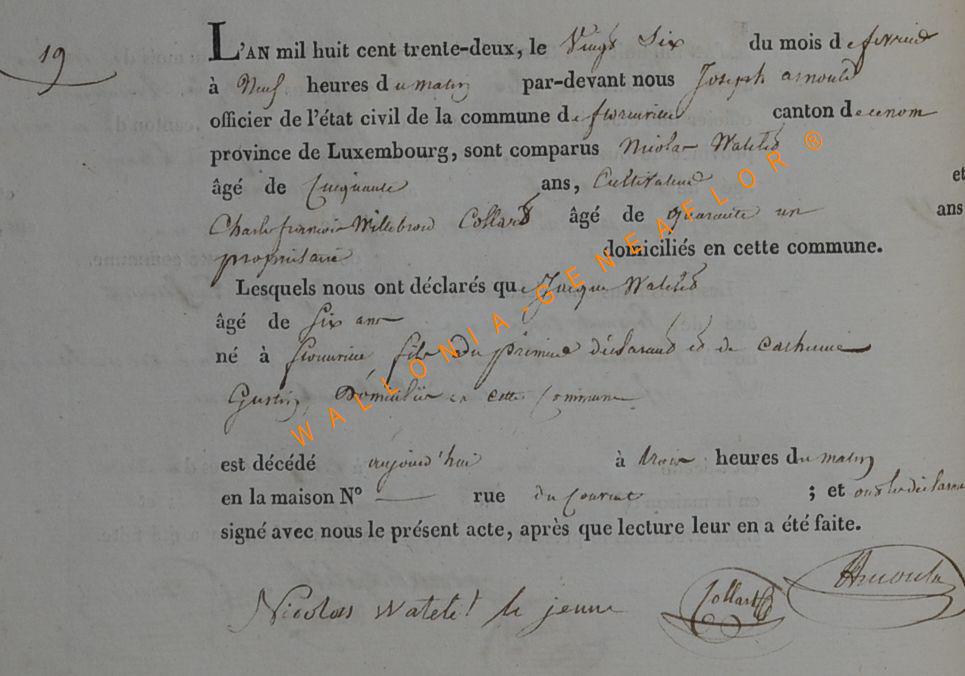 19
L'AN mil huit cent trente-deux, le Vingt Six du mois de fevrier
à Neuf heures du matin par-devant nous Joseph arnould
officier de l'état civil de la commune de florenville canton de
province de Luxembourg, sont comparus Nicolas Watelet
âgé de Cinquante ans, Cultivateur et
Charle francois Willebrord Collard âgé de quarante un ans
propriétaire domiciliés en cette commune.
Lesquels nous ont déclarés que Jacque Watelet
âgé de Six ans
né à florenville fils du premier déclarant et de Catherine
Gustin, Domicilié en cette Commune
est décédé aujourd'hui à trois heures du matin
en la maison N° — rue du Couvent ; et ont les déclarants
signé avec nous le présent acte, après que lecture leur en a été faite.
Nicolas Watelet le jeune Collard Arnould
WALLONIA-GENEAFLOR ®